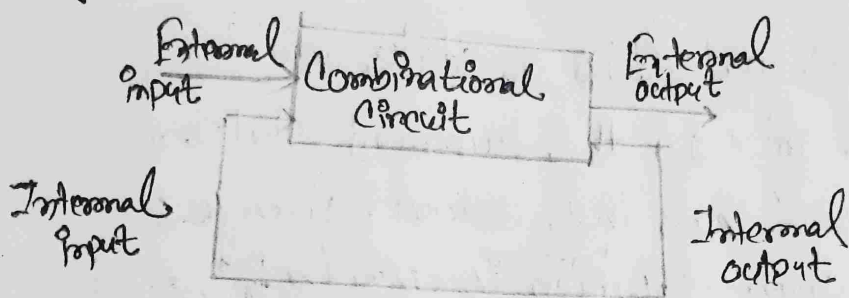 External
input
Combinational
Circuit
External
output
Internal
input
Internal
output